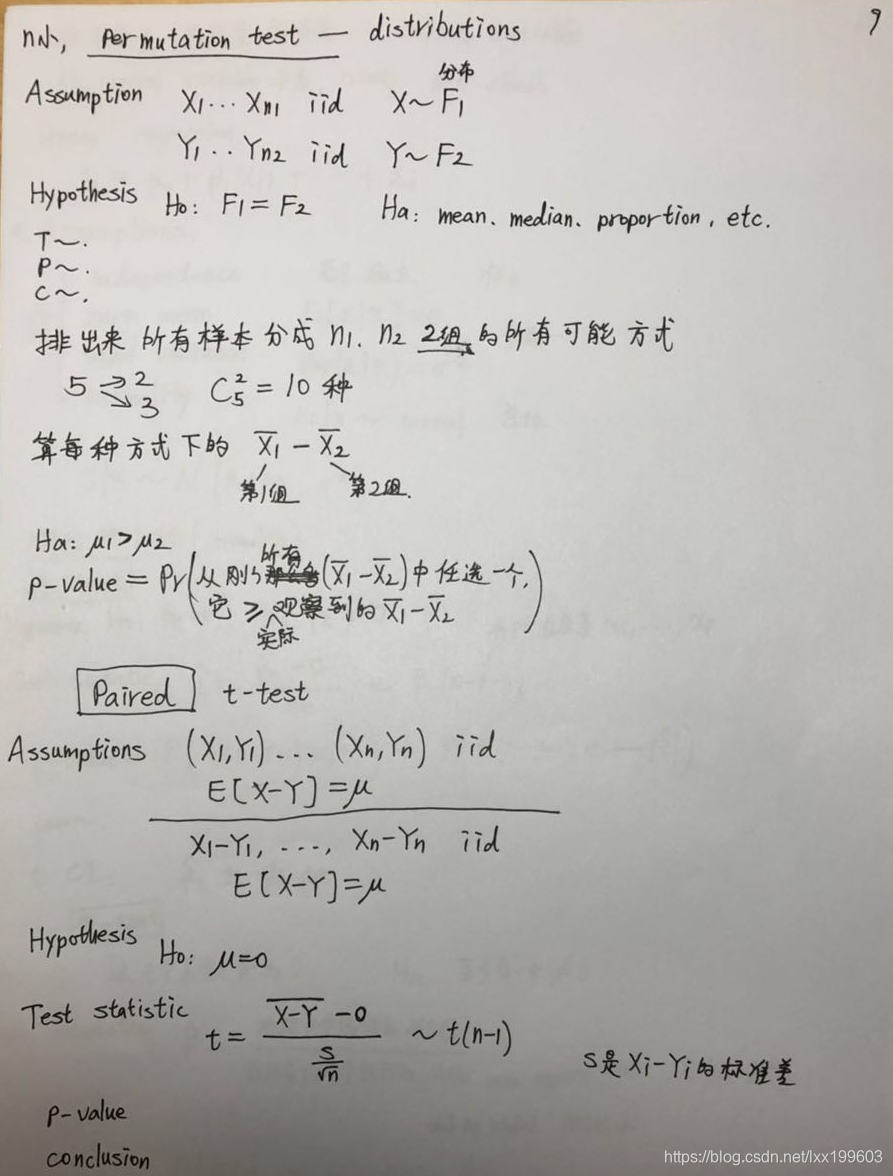 9
n小, Permutation test — distributions
分布
Assumption X1... Xn1 iid X~F1
Y1 .. Yn2 iid Y~F2
Hypothesis Ho: F1 = F2 Ha: mean、median、proportion, etc.
T~.
P~.
C~.
排出来 所有样本分成 n1、n2 2组 的所有可能方式
5 → 2 C₅² = 10 种
↘ 3
算每种方式下的 X̄1 - X̄2
第1组 第2组.
Ha: μ1 > μ2
所有
p-value = Pr(从刚才 (X̄1-X̄2)中任选一个,
它 ≥ 观察到的 X̄1-X̄2)
实际
Paired t-test
Assumptions (X1,Y1) ... (Xn,Yn) iid
E[X-Y]=μ
X1-Y1, ..., Xn-Yn iid
E[X-Y]=μ
Hypothesis Ho: μ=0
Test statistic t = (\overline{X-Y} - 0) / (s/√n) ~ t(n-1)
S是 Xi-Yi的标准差
p-value
conclusion
https://blog.csdn.net/lxx199603